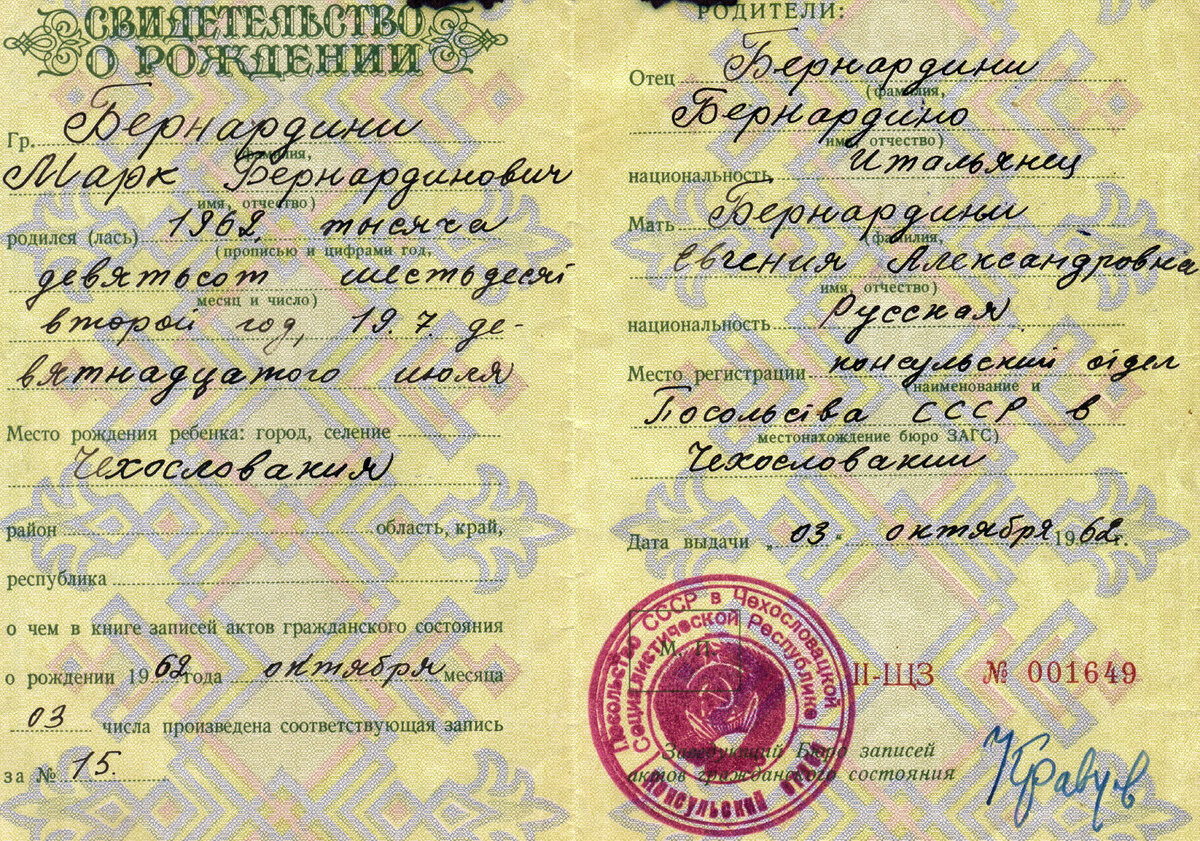 СВИДЕТЕЛЬСТВО
О РОЖДЕНИИ
Гр. Бернардини
(фамилия,
Марк Бернардинович
имя, отчество)
родился (лась) 1962, тысяча
(прописью и цифрами год,
девятьсот шестьдесят
месяц и число)
второй год, 19. 7. де-
вятнадцатого июля
Место рождения ребенка: город, селение
Чехословакия
район область, край,
республика
о чем в книге записей актов гражданского состояния
о рождении 1962 года октября месяца
03 числа произведена соответствующая запись
за № 15.
РОДИТЕЛИ:
Отец Бернардини
(фамилия,
Бернардино
имя, отчество)
национальность Итальянец
Мать Бернардини
(фамилия,
Евгения Александровна
имя, отчество)
национальность Русская
Место регистрации консульский отдел
(наименование и
Посольства СССР в
местонахождение бюро ЗАГС)
Чехословакии
Дата выдачи „03“ октября 1962г.
Посольство СССР в Чехословацкой
Социалистической Республике
Консульский отдел
М. П.
II-ЩЗ № 001649
Заведующий Бюро записей
актов гражданского состояния